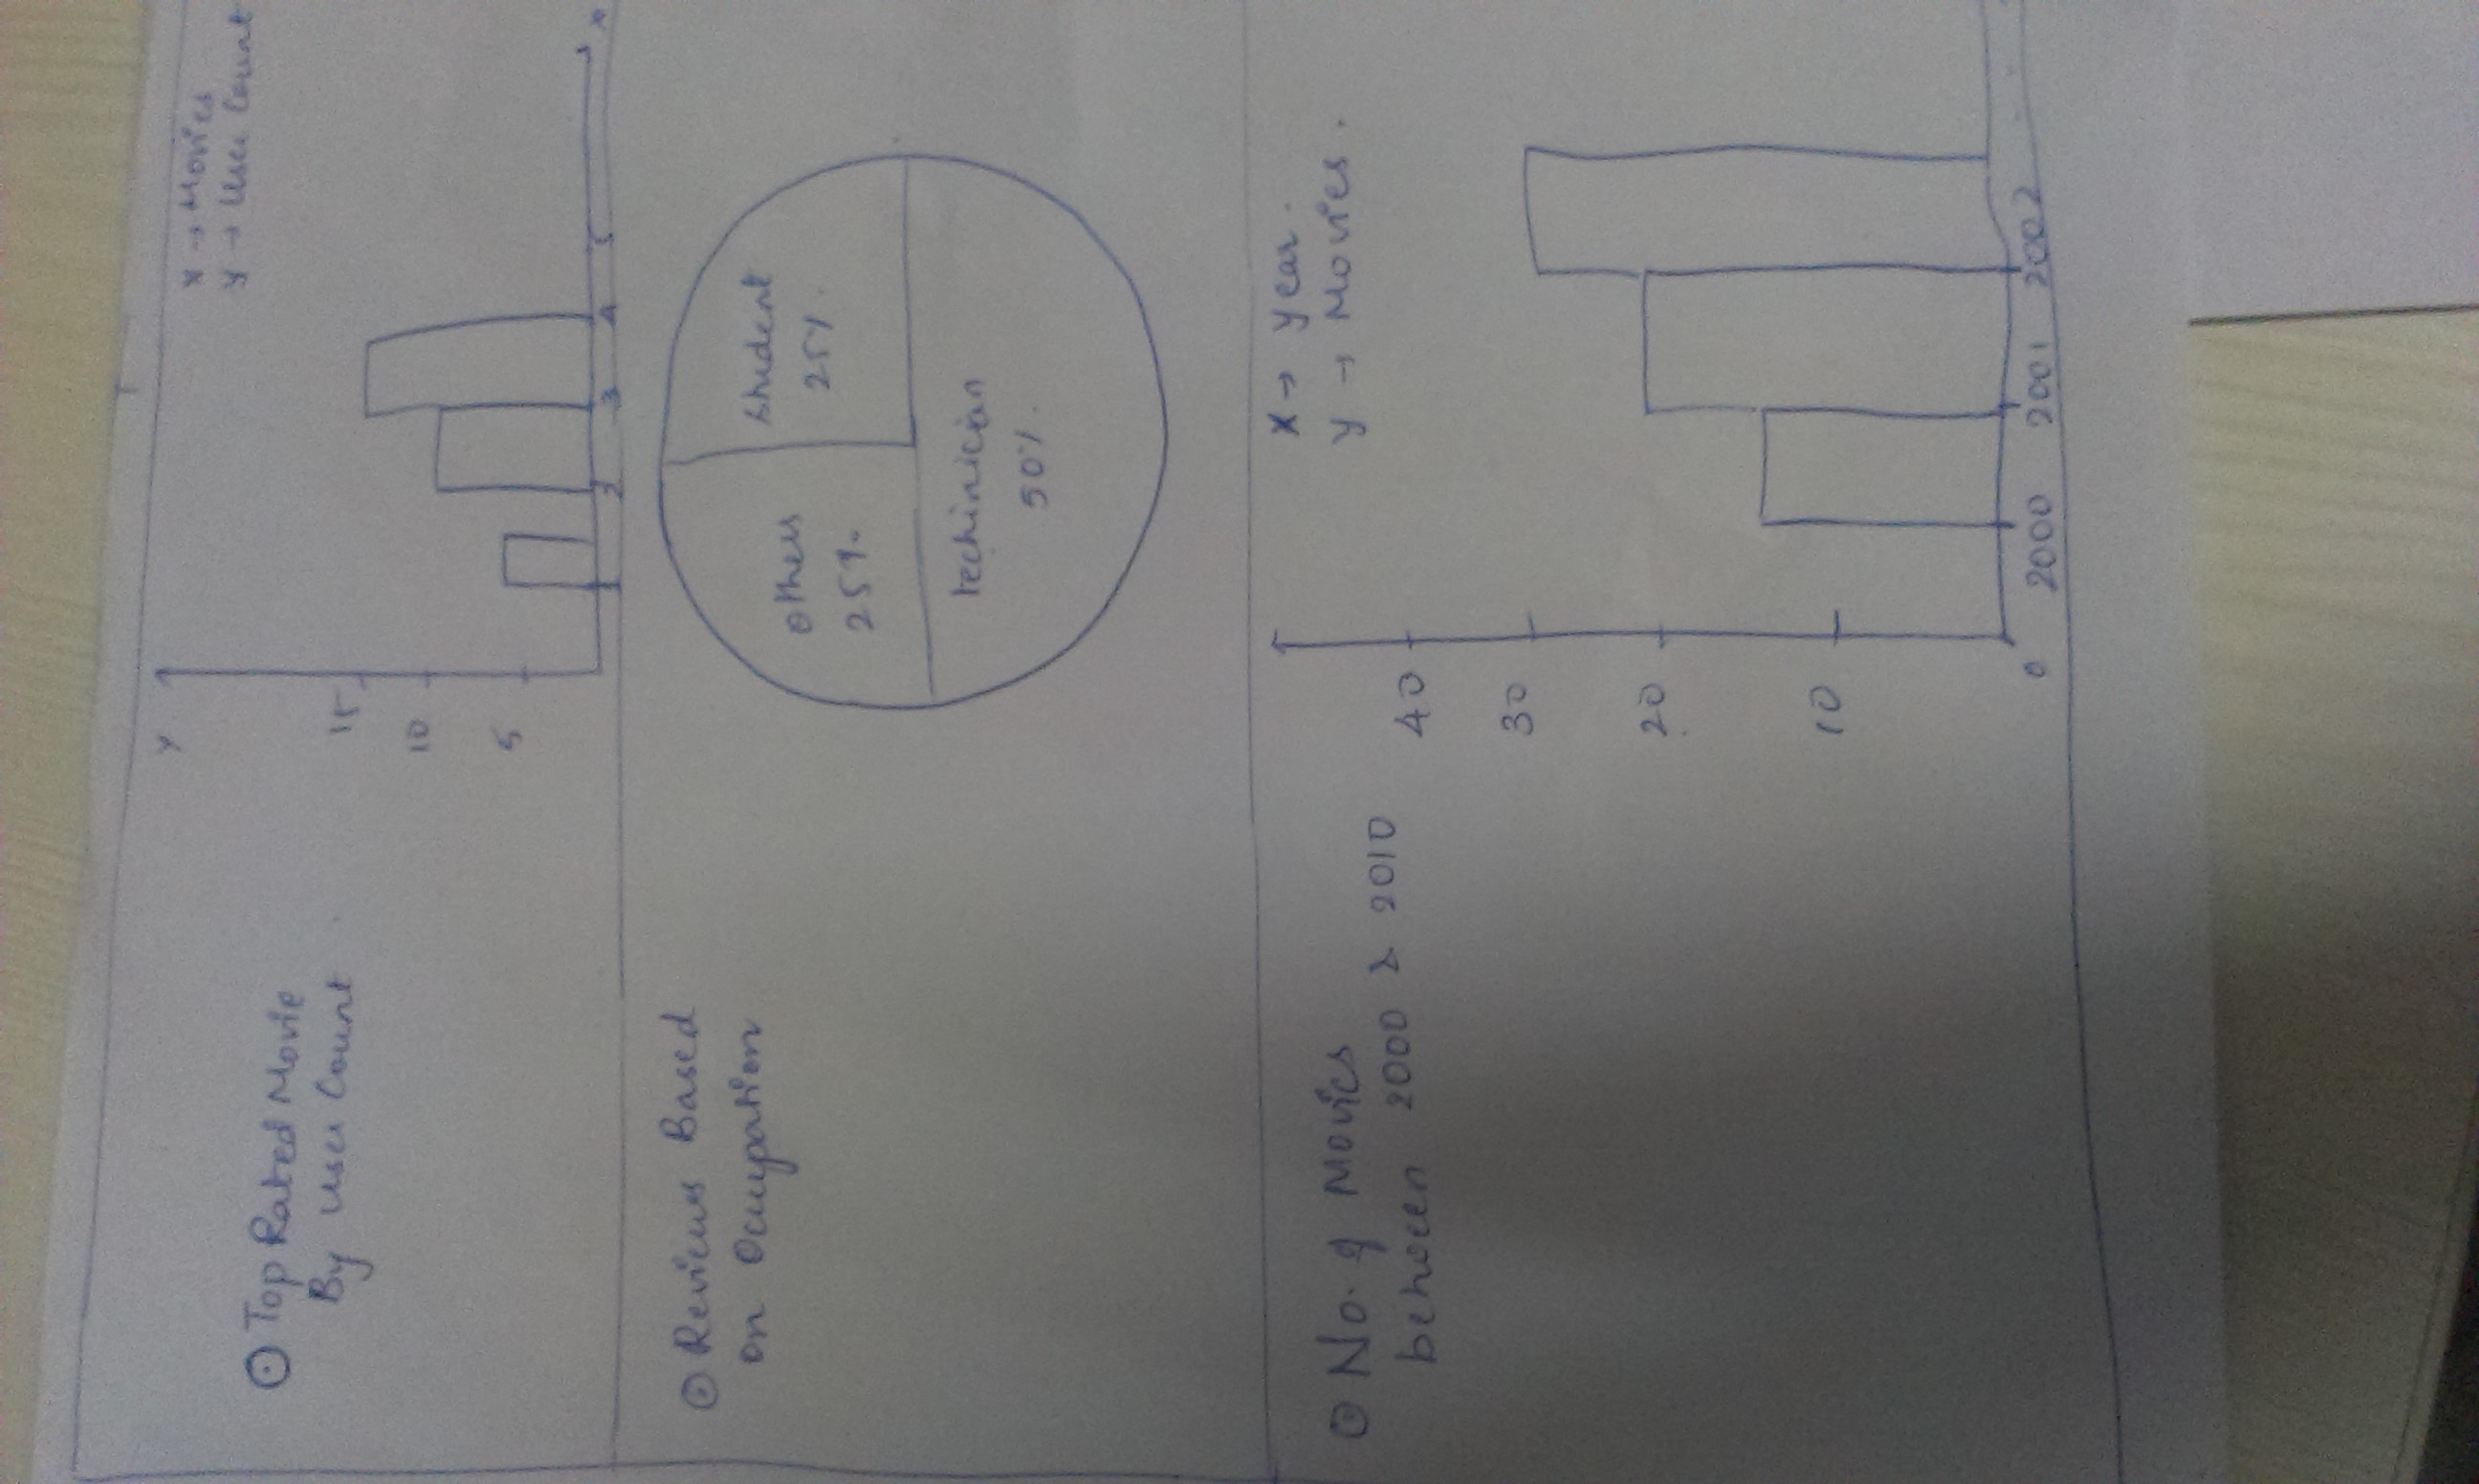 ⊙ Top Rated Movie
By User Count
x → Movies
y → User Count
y
15
10
5
1 2 3 4 5
x
⊙ Reviews Based
on Occupation
others
25%
student
25%.
techinician
50%.
⊙ No. of Movies
between 2000 & 2010
x → year.
y → Movies.
40
30
20
10
0
2000 2001 2002